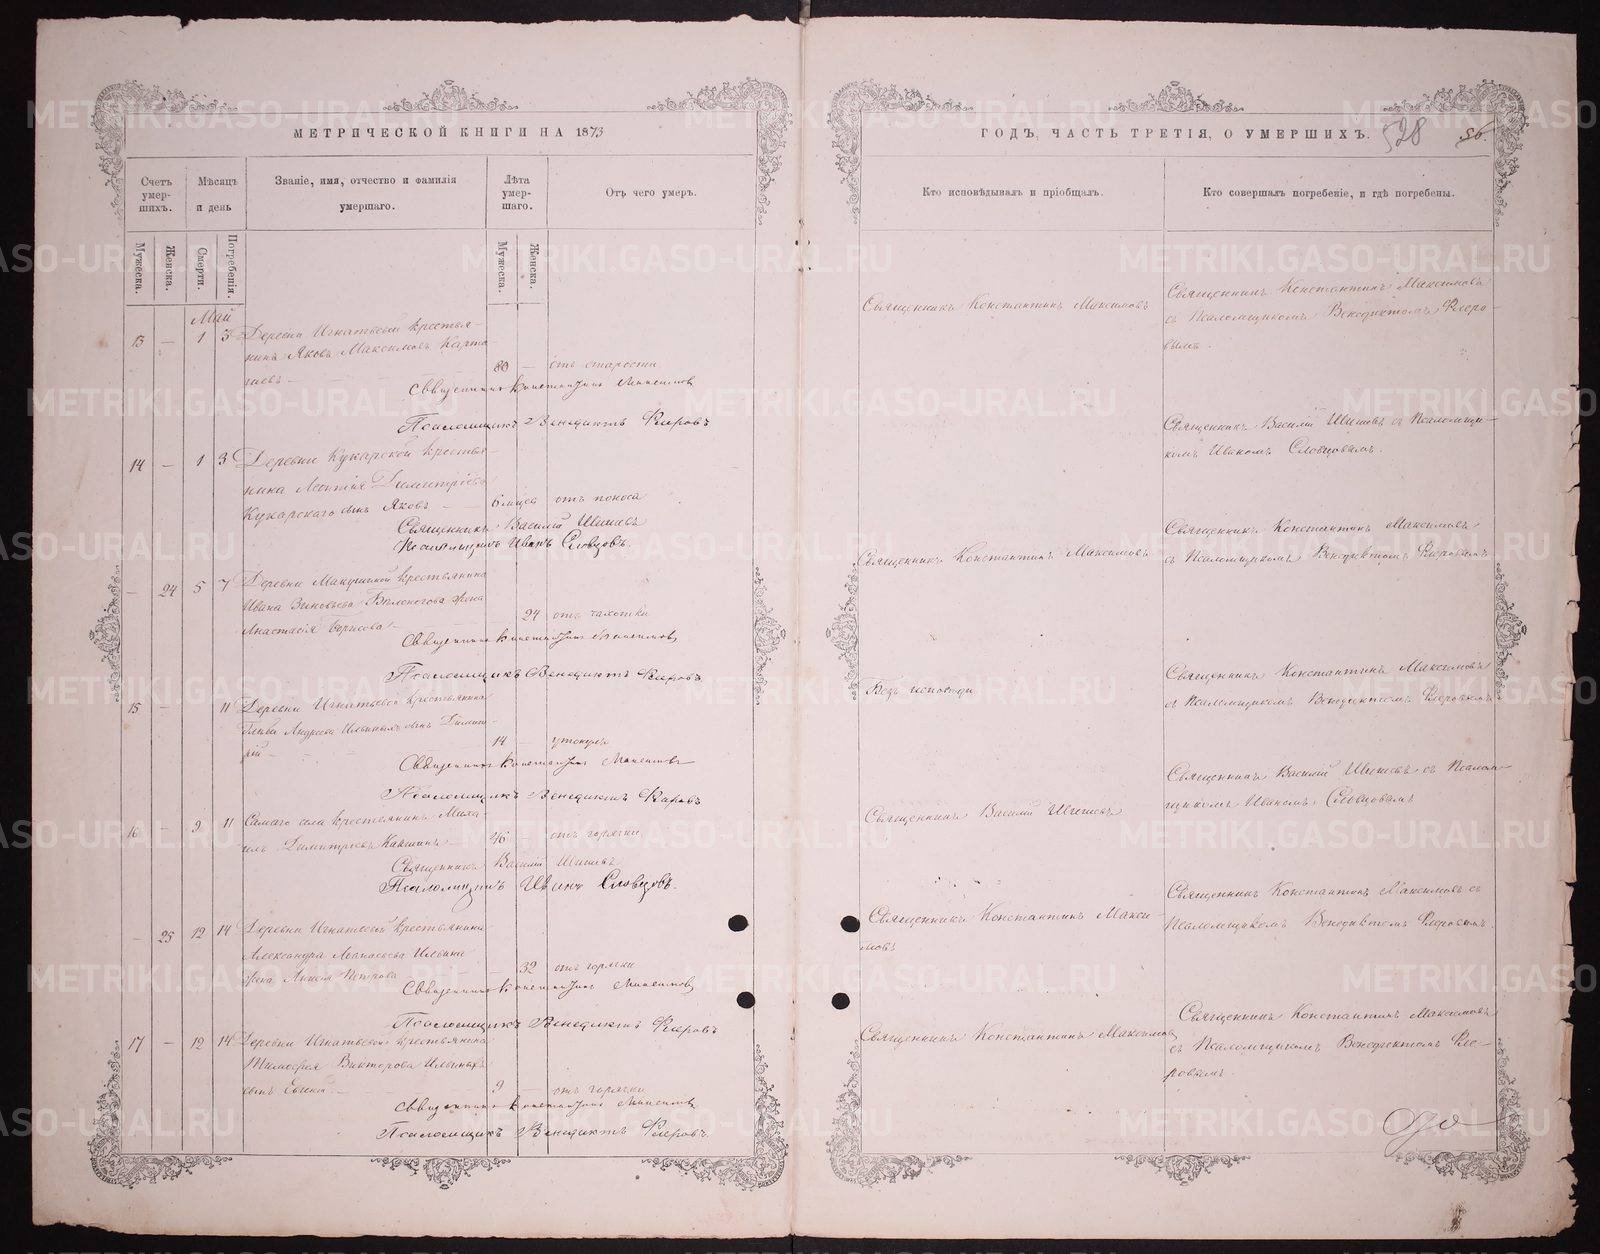 МЕТРИЧЕСКОЙ КНИГИ НА 1873
Счетъ умер-шихъ.
Мѣсяцъ и день
Званіе, имя, отчество и фамилія умершаго.
Лѣта умер-шаго.
Отъ чего умеръ.
Мужеска.
Женска.
Смерти.
Погребенія.
Мужеска.
Женска.
Май
13 — 1 3 Деревни Игнатьевой крестья-
нинъ Яковъ Максимовъ
80 — отъ старости
Священникъ Константинъ Максимовъ
Псаломщикъ Венедиктъ Флеровъ
14 — 1 3 Деревни Кукарской крестья-
нина Леонтія Димитріева
Кукарскаго сынъ Яковъ — 6 мцев отъ поноса
Священникъ Василій Шишевъ
Псаломщикъ Иванъ Словцовъ.
— 24 5 7 Деревни Макушиной крестьянина
Ивана Зиновьева Бѣлоногова жена
Анастасія Борисова — 24 отъ чахотки
Священникъ Константинъ Максимовъ
Псаломщикъ Венедиктъ Флеровъ
15 — 11 Деревни Игнатьевой крестьянина
Андреева Ильиныхъ сынъ Димит-
рій — 14 — утонулъ
Священникъ Константинъ Максимовъ
Псаломщикъ Венедиктъ Флеровъ
16 — 9 11 Самаго села крестьянинъ Миха-
илъ Димитріевъ 46 отъ горячки
Священникъ Василій Шишевъ
Псаломщикъ Иванъ Словцовъ.
— 25 12 14 Деревни Игнатьевой крестьянина
Александра Аѳанасьева Ильина
жена Анисія Петрова 32 отъ горячки
Священникъ Константинъ Максимовъ
Псаломщикъ Венедиктъ Флеровъ
17 — 12 14 Деревни Игнатьевой крестьянина
Тимоѳея Викторова Ильиныхъ
сынъ Евгеній — 9 — отъ горячки
Священникъ Константинъ Максимовъ
Псаломщикъ Венедиктъ Флеровъ.
ГОДЪ, ЧАСТЬ ТРЕТІЯ, О УМЕРШИХЪ. 528 56.
Кто исповѣдывалъ и пріобщалъ.
Кто совершалъ погребеніе, и гдѣ погребены.
Священникъ Константинъ Максимовъ
Священникъ Константинъ Максимовъ
съ Псаломщикомъ Венедиктомъ Флеро-
вымъ.
Священникъ Василій Шишевъ съ Псаломщи-
комъ Иваномъ Словцовымъ.
Священникъ Константинъ Максимовъ
Священникъ Константинъ Максимовъ
съ Псаломщикомъ Венедиктомъ Флеровымъ
Безъ исповѣди
Священникъ Константинъ Максимовъ
съ Псаломщикомъ Венедиктомъ Флеровымъ
Священникъ Василій Шишевъ
Священникъ Василій Шишевъ съ Псалом-
щикомъ Иваномъ Словцовымъ
Священникъ Константинъ Макси-
мовъ
Священникъ Константинъ Максимовъ съ
Псаломщикомъ Венедиктомъ Флеровымъ.
Священникъ Константинъ Максимовъ
Священникъ Константинъ Максимовъ
съ Псаломщикомъ Венедиктомъ Фле-
ровымъ.
METRIKI.GASO-URAL.RU